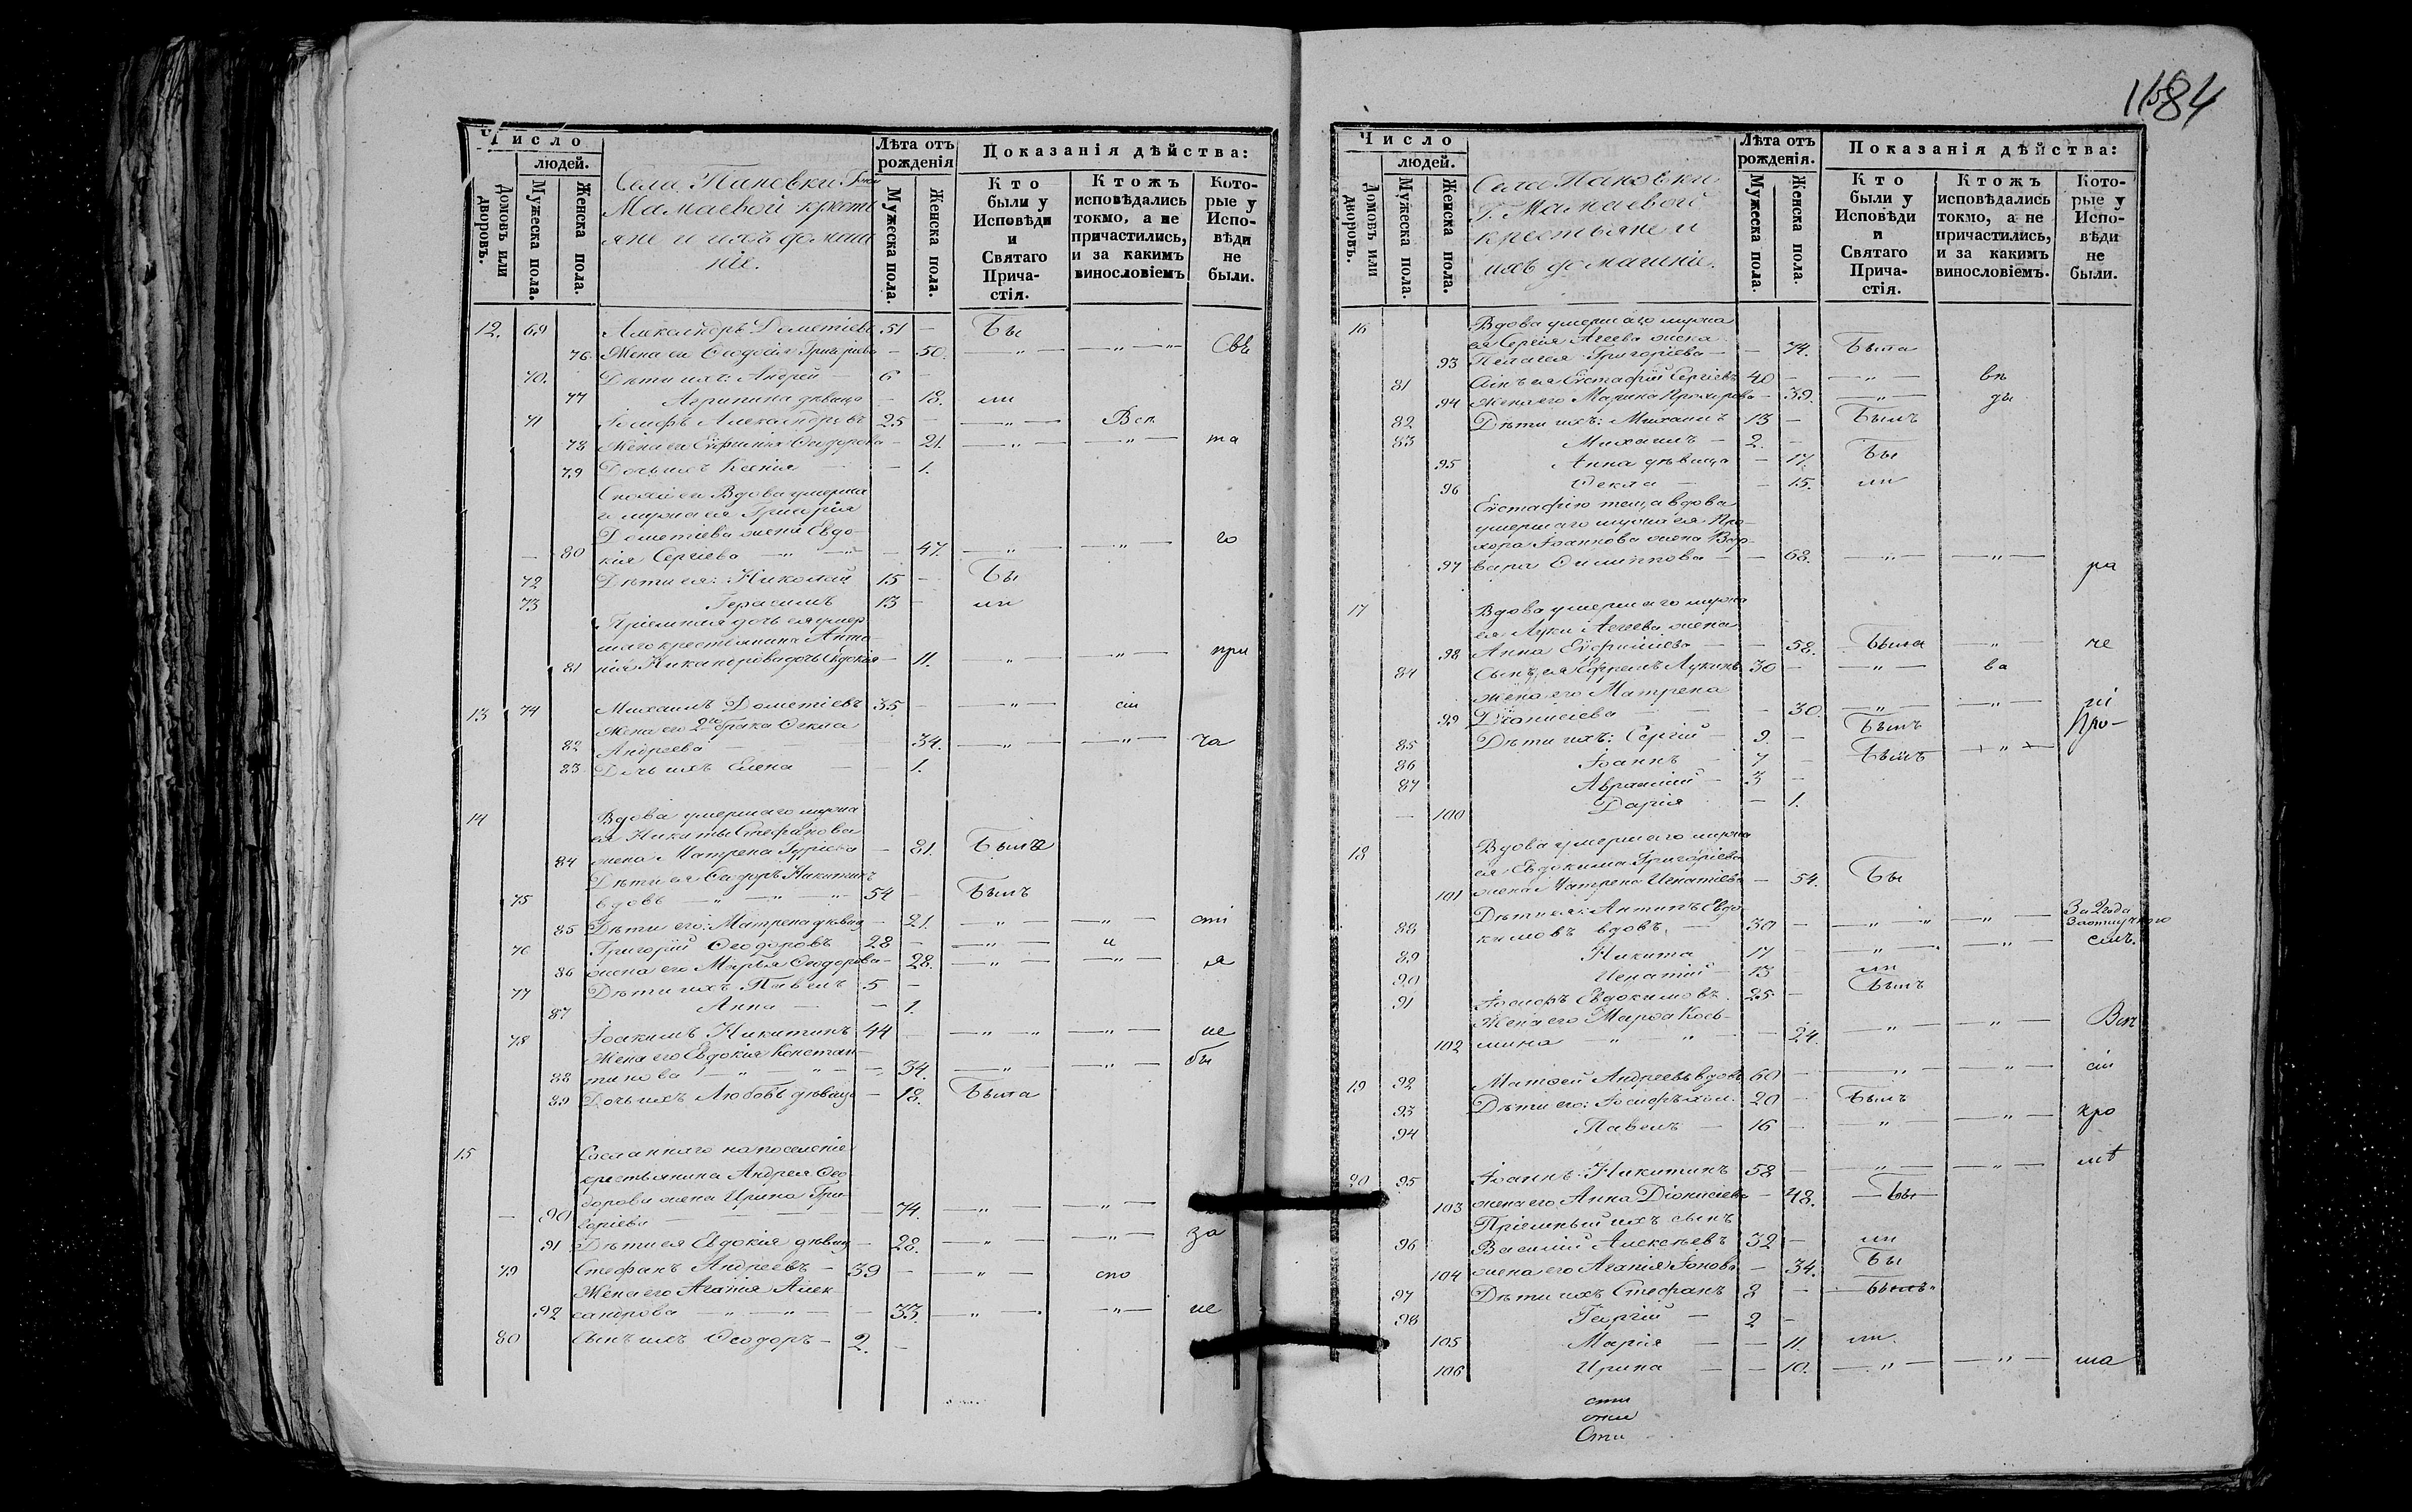 1184
Число
людей.
Домовъ или дворовъ.
Мужеска пола.
Женска пола.
Села Пановки Г-жи
Мамаевой кресть
яне и ихъ домаш
ніе.
Лѣта отъ рожденія
Мужеска пола.
Женска пола.
Показанія дѣйства:
Кто были у Исповѣди и Святаго Прича-стія.
Ктожъ исповѣдались токмо, а не причастились, и за какимъ винословіемъ
Кото-рые у Испо-вѣди не были.
12. 69 Александръ Дометіевъ 51 – Бы
76 Жена его Ѳеодосія Григоріева – 50. – „ – – „ – Свѣ
70. Дѣти ихъ: Андрей 6 –
77 Агрипина дѣвица – 18. ли
71 Іосифъ Александровъ 25 – – „ – Всп
78 Жена его Евфимія Ѳеодорова – 21. – „ – – „ – та
79 Дочь ихъ Ксенія – – 1.
Сноха его Вдова умерша
го мужа ея Григорія
Дометіева жена Евдо-
– 80 кія Сергіева – „ – – 47. – „ – – „ – го
72 Дѣти ея: Николай 15 – Бы
73 Герасимъ 13 – ли
Пріемная дочь ея умер
шаго крестьянина Анто-
81 нія Никанорова дочь Евдокія – 11. – „ – – „ – при
13 74 Михаилъ Дометіевъ 35 – – „ – сти
Жена его 2го брака Ѳекла
82 Андреева – – 34. – „ – – „ – ча
83 Дочь ихъ Елена – – 1.
14 Вдова умершаго мужа
ея Никиты Стефанова
84 жена Матрена Гуріева – 81. Была
Дѣти ея Ѳеодоръ Никитинъ
75 вдовъ – „ – „ – 54 – Былъ
85 Дѣти его: Матрена дѣвица – 21. – „ – – „ – сті
76 Григорій Ѳеодоровъ 28 – – „ – и
86 жена его Марѳа Ѳеодорова – 28. – „ – – „ – я
77 Дѣти ихъ Павелъ 5 –
87 Анна – – 1.
78 Іоакимъ Никитинъ 44 – „ – – „ – не
Жена его Евдокія Констан-
88 тинова – „ – „ – – 34. – „ – – „ – бы
89 Дочь ихъ Любовь дѣвица – 18. Была
15 Сосланнаго на поселеніе
крестьянина Андрея Ѳео-
дорова жена Ирина Гри-
– 90 горіева – – 74. – „ – – „ –
91 Дѣти ея Евдокія дѣвица – 28. – „ – – „ – за
79 Стефанъ Андреевъ – 39 – – „ – сто
Жена его Агаѳія Алек-
92 сандрова – „ – „ – – 33. – „ – – „ – не
80 Сынъ ихъ Ѳеодоръ – 2. –
Число
людей.
Домовъ или дворовъ.
Мужеска пола.
Женска пола.
Села Пановки
Г. Мамаевой
крестьяне и
ихъ домашніе.
Лѣта отъ рожденія.
Мужеска пола.
Женска пола.
Показанія дѣйства:
Кто были у Исповѣди и Святаго Прича-стія.
Ктожъ исповѣдались токмо, а не причастились, и за какимъ винословіемъ.
Кото-рые у Испо-вѣди не были.
16 Вдова умершаго мужа
ея Сергія Агеева жена
93 Пелагея Григоріева – – 74. Была
81 Сынъ ея Евстафій Сергіевъ 40 – – „ – въ
94 Жена его Марина Прохорова – 39. – „ – ды
82 Дѣти ихъ: Михаилъ 13 – Былъ
83 Михаилъ – 2. –
95 Анна дѣвица – 17. Бы
96 Ѳекла – – 15. ли
Евстафію теща вдова
умершаго мужа ея Про-
хора Іоаннова жена Вар-
97 вара Филиппова – – 68. – „ – – „ – ра
17 Вдова умершаго мужа
ея Луки Агеева жена
98 Анна Евфиміева – – 58. Была – „ – че
84 Сынъ ея Ефремъ Лукинъ 30 – – „ – ва
жена его Матрена
99 Діонисіева – – 30. – „ – – „ – рі
85 Дѣти ихъ: Сергій – 9. – Былъ Про-
86 Іоаннъ – 7 – Былъ – „ –
87 Аврамій – 3 –
– 100 Дарія – 1.
18 Вдова умершаго мужа
ея Евдокима Григоріева
101 жена Матрена Игнатіева – 54. Бы
Дѣти ея: Антипъ Евдо- За 2 года
88 кимовъ вдовъ. – 30 – – „ – „ – „ – Заотлучкого
89 Никита 17 – – „ – – „ – сить.
90 Игнатій – 13 – ли
91 Іосифъ Евдокимовъ. 25 – Былъ
Жена его Марѳа Козь-
102 мина – „ – „ – – 24. – „ – – „ – Всп
19 92 Матѳей Андреевъ вдовъ 60 – – „ – – „ – сти
93 Дѣти его: Іосифъ хол. 20 – Былъ
94 Павелъ – 16 – – „ – – „ – кро
20 95 Іоаннъ Никитинъ 58 – – „ – – „ – мѣ
103 жена его Анна Діонисіева – 48. – Бы –
Пріемный ихъ сынъ
96 Василій Алексѣевъ 32 – ли
104 жена его Агапія Іонова – 34. Бы
97 Дѣти ихъ Стефанъ 8 – Былъ
98 Георгій – 2 –
105 Марія – – 11. ли.
106 Ирина – – 10. – „ – – „ – ша
сти
Сти